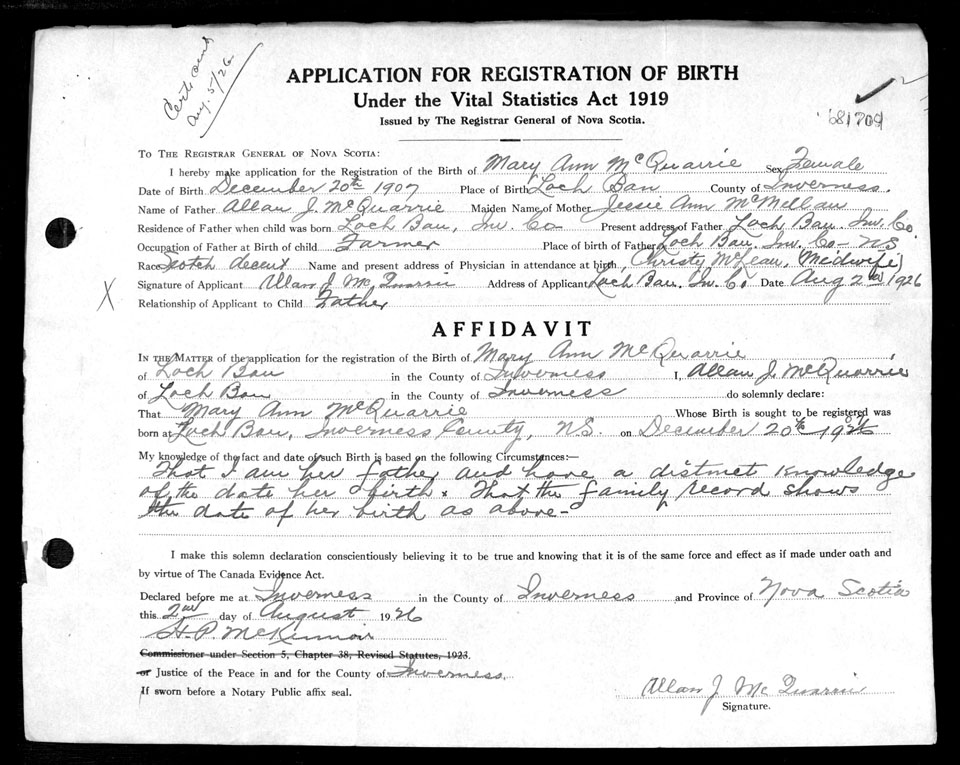 Certs sent
Aug. 5/26
APPLICATION FOR REGISTRATION OF BIRTH
Under the Vital Statistics Act 1919
Issued by The Registrar General of Nova Scotia.
681709
TO THE REGISTRAR GENERAL OF NOVA SCOTIA:
I hereby make application for the Registration of the Birth of Mary Ann McQuarrie Sex Female
Date of Birth December 20th 1907 Place of Birth Loch Ban County of Inverness.
Name of Father Allan J. McQuarrie Maiden Name of Mother Jessie Ann McMillan
Residence of Father when child was born Loch Ban, Inv. Co Present address of Father Loch Ban. Inv. Co.
Occupation of Father at Birth of child Farmer Place of birth of Father Loch Ban. Inv. Co - NS
Race Scotch decent Name and present address of Physician in attendance at birth, Christy McLean, (Midwife)
Signature of Applicant Allan J Mc Quarrie Address of Applicant Loch Ban. In. Co Date Aug 2nd 1926
X
Relationship of Applicant to Child Father
AFFIDAVIT
IN THE MATTER of the application for the registration of the Birth of Mary Ann McQuarrie
of Loch Ban in the County of Inverness I, Allan J. McQuarrie
of Loch Ban in the County of Inverness do solemnly declare:
That Mary Ann McQuarrie Whose Birth is sought to be registered was
born at Loch Ban, Inverness County, N.S. on December 20th
My knowledge of the fact and date of such Birth is based on the following Circumstances:—
That I am her father and have a distinct knowledge
of the date her birth & that the family record shows
the date of her birth as above -
I make this solemn declaration conscientiously believing it to be true and knowing that it is of the same force and effect as if made under oath and
by virtue of The Canada Evidence Act.
Declared before me at Inverness in the County of Inverness and Province of Nova Scotia
this 2nd day of August 1926
H.P. McKinnon
Commissioner under Section 5, Chapter 38, Revised Statutes, 1923.
or Justice of the Peace in and for the County of Inverness.
If sworn before a Notary Public affix seal.
Allan J Mc Quarrie
Signature.